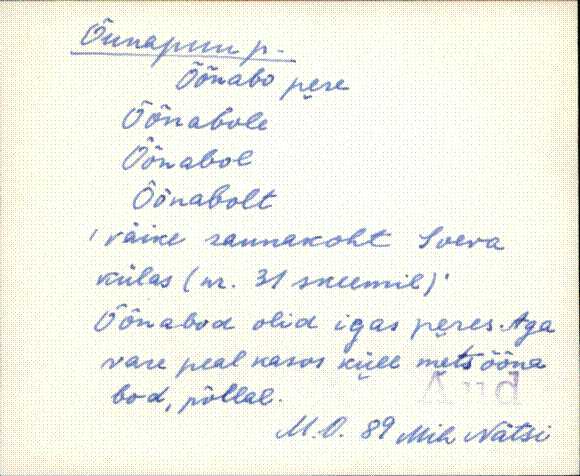 Õunapuu p.
Õõnabo pere
Õõnabole
Õõnabol
Õõnabolt
'väike saunakoht Soeva
külas (nr. 31 skeemil)'
Õõnabod olid igas peres. Aga
vare peal kasos küll metsõõna
bod, põllal.
Aud
M.O. 89 Mih Nätsi